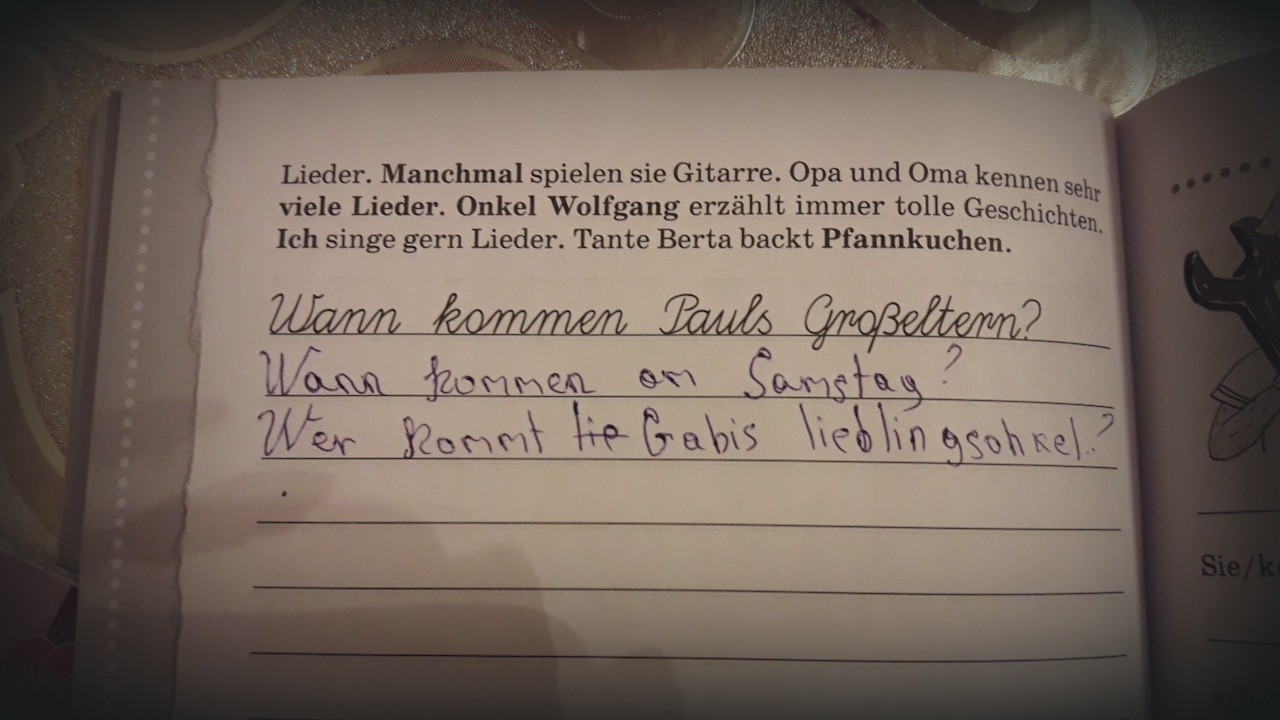 Lieder. Manchmal spielen sie Gitarre. Opa und Oma kennen sehr
viele Lieder. Onkel Wolfgang erzählt immer tolle Geschichten.
Ich singe gern Lieder. Tante Berta backt Pfannkuchen.
Wann kommen Pauls Großeltern?
Wann kommen am Samstag?
Wer kommt tie Gabis lieblingsonkel.?
Sie/k